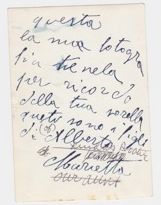 questa
la mia fotogra
fia tienela
per ricordo
della tua sorella
questi sono i figli
di Alberto
Marietta
our aunt